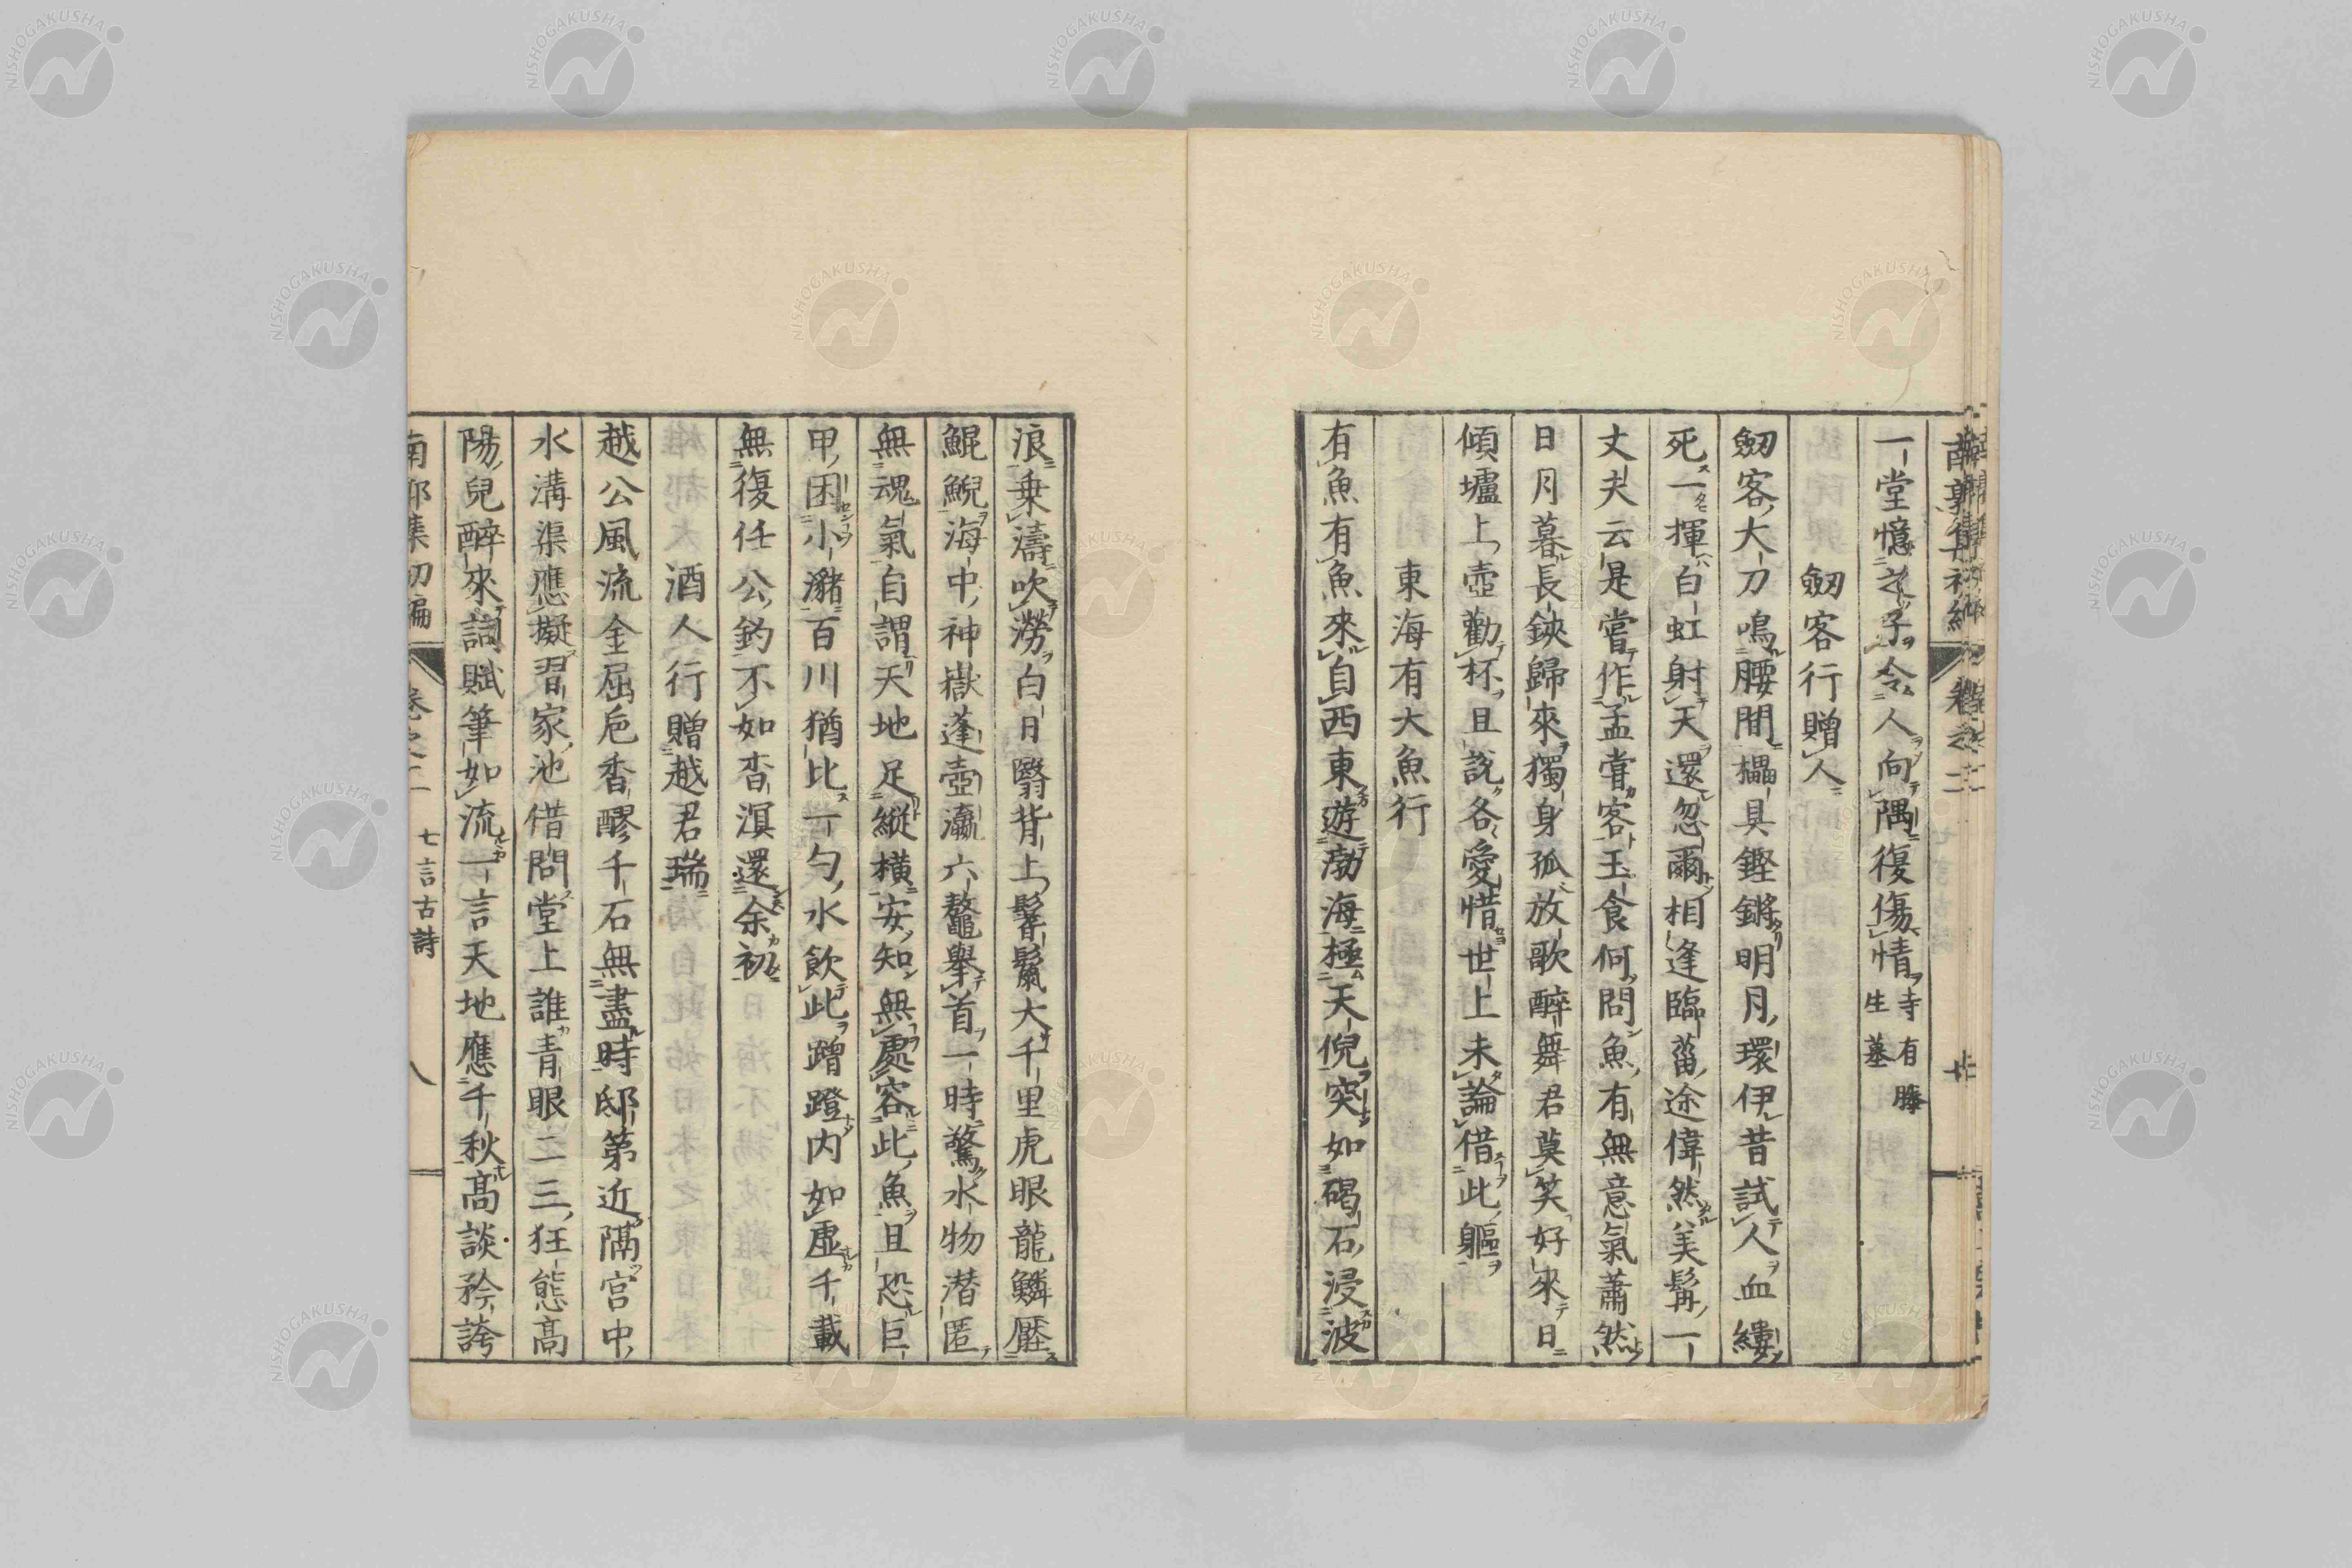 一堂憶之子令人向隅復傷情寺有勝生墓
劒客行贈人
劒客大刀鳴腰間櫑具鏗鏘明月環伊昔試人血縷
死一揮白虹射天還忽爾相逢臨菑途偉然美髯一
丈夫云是嘗作孟嘗客玉食何問魚有無意氣蕭然
日月暮長鋏歸來獨身孤放歌醉舞君莫笑好來日
傾壚上壺勸杯且說各愛惜世上未論借此軀
東海有大魚行
有魚有魚來自西東遊渤海極天倪突如碣石浸波
浪乗濤吹澇白日翳背上鬐鬣大千里虎眼龍鱗壓
鯤鯢海中神嶽蓬壺瀛六鼇舉首一時驚水物潜匿
無魂氣自謂天地足縱橫安知無處容此魚且恐巨
甲困小瀦百川猶比一勺水飲此蹭蹬内如虛千載
無復任公釣不如杳溟還余初
酒人行贈越君瑞
越公風流金屈巵香醪千石無盡時邸第近隔宮中
水溝渠應擬習家池借問堂上誰青眼二三狂態高
陽兒醉來詞賦筆如流一言天地應千秋高談矜誇
南郭集初編
卷之二
七言古詩
八
NISHOGAKUSHA